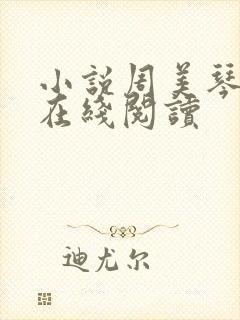 小説周美琴
在綫閱讀
迪尤尔